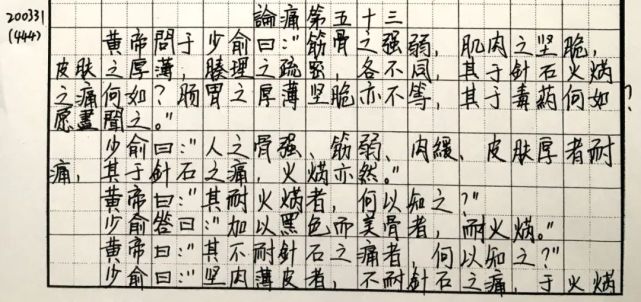 200331
(444)
論痛第五十三
黄帝問于少俞曰:"筋骨之强弱,肌肉之坚脆,
皮肤之厚薄,腠理之疏密,各不同,其于針石火焫
之痛何如?肠胃之厚薄坚脆亦不等,其于毒药何如?
愿盡聞之。"
少俞曰:"人之骨强、筋弱、肉緩、皮肤厚者耐
痛,其于針石之痛,火焫亦然。"
黄帝曰:"其耐火焫者,何以知之?"
少俞答曰:"加以黑色而美骨者,耐火焫。"
黄帝曰:"其不耐針石之痛者,何以知之?"
少俞曰:"坚肉薄皮者,不耐針石之痛,于火焫